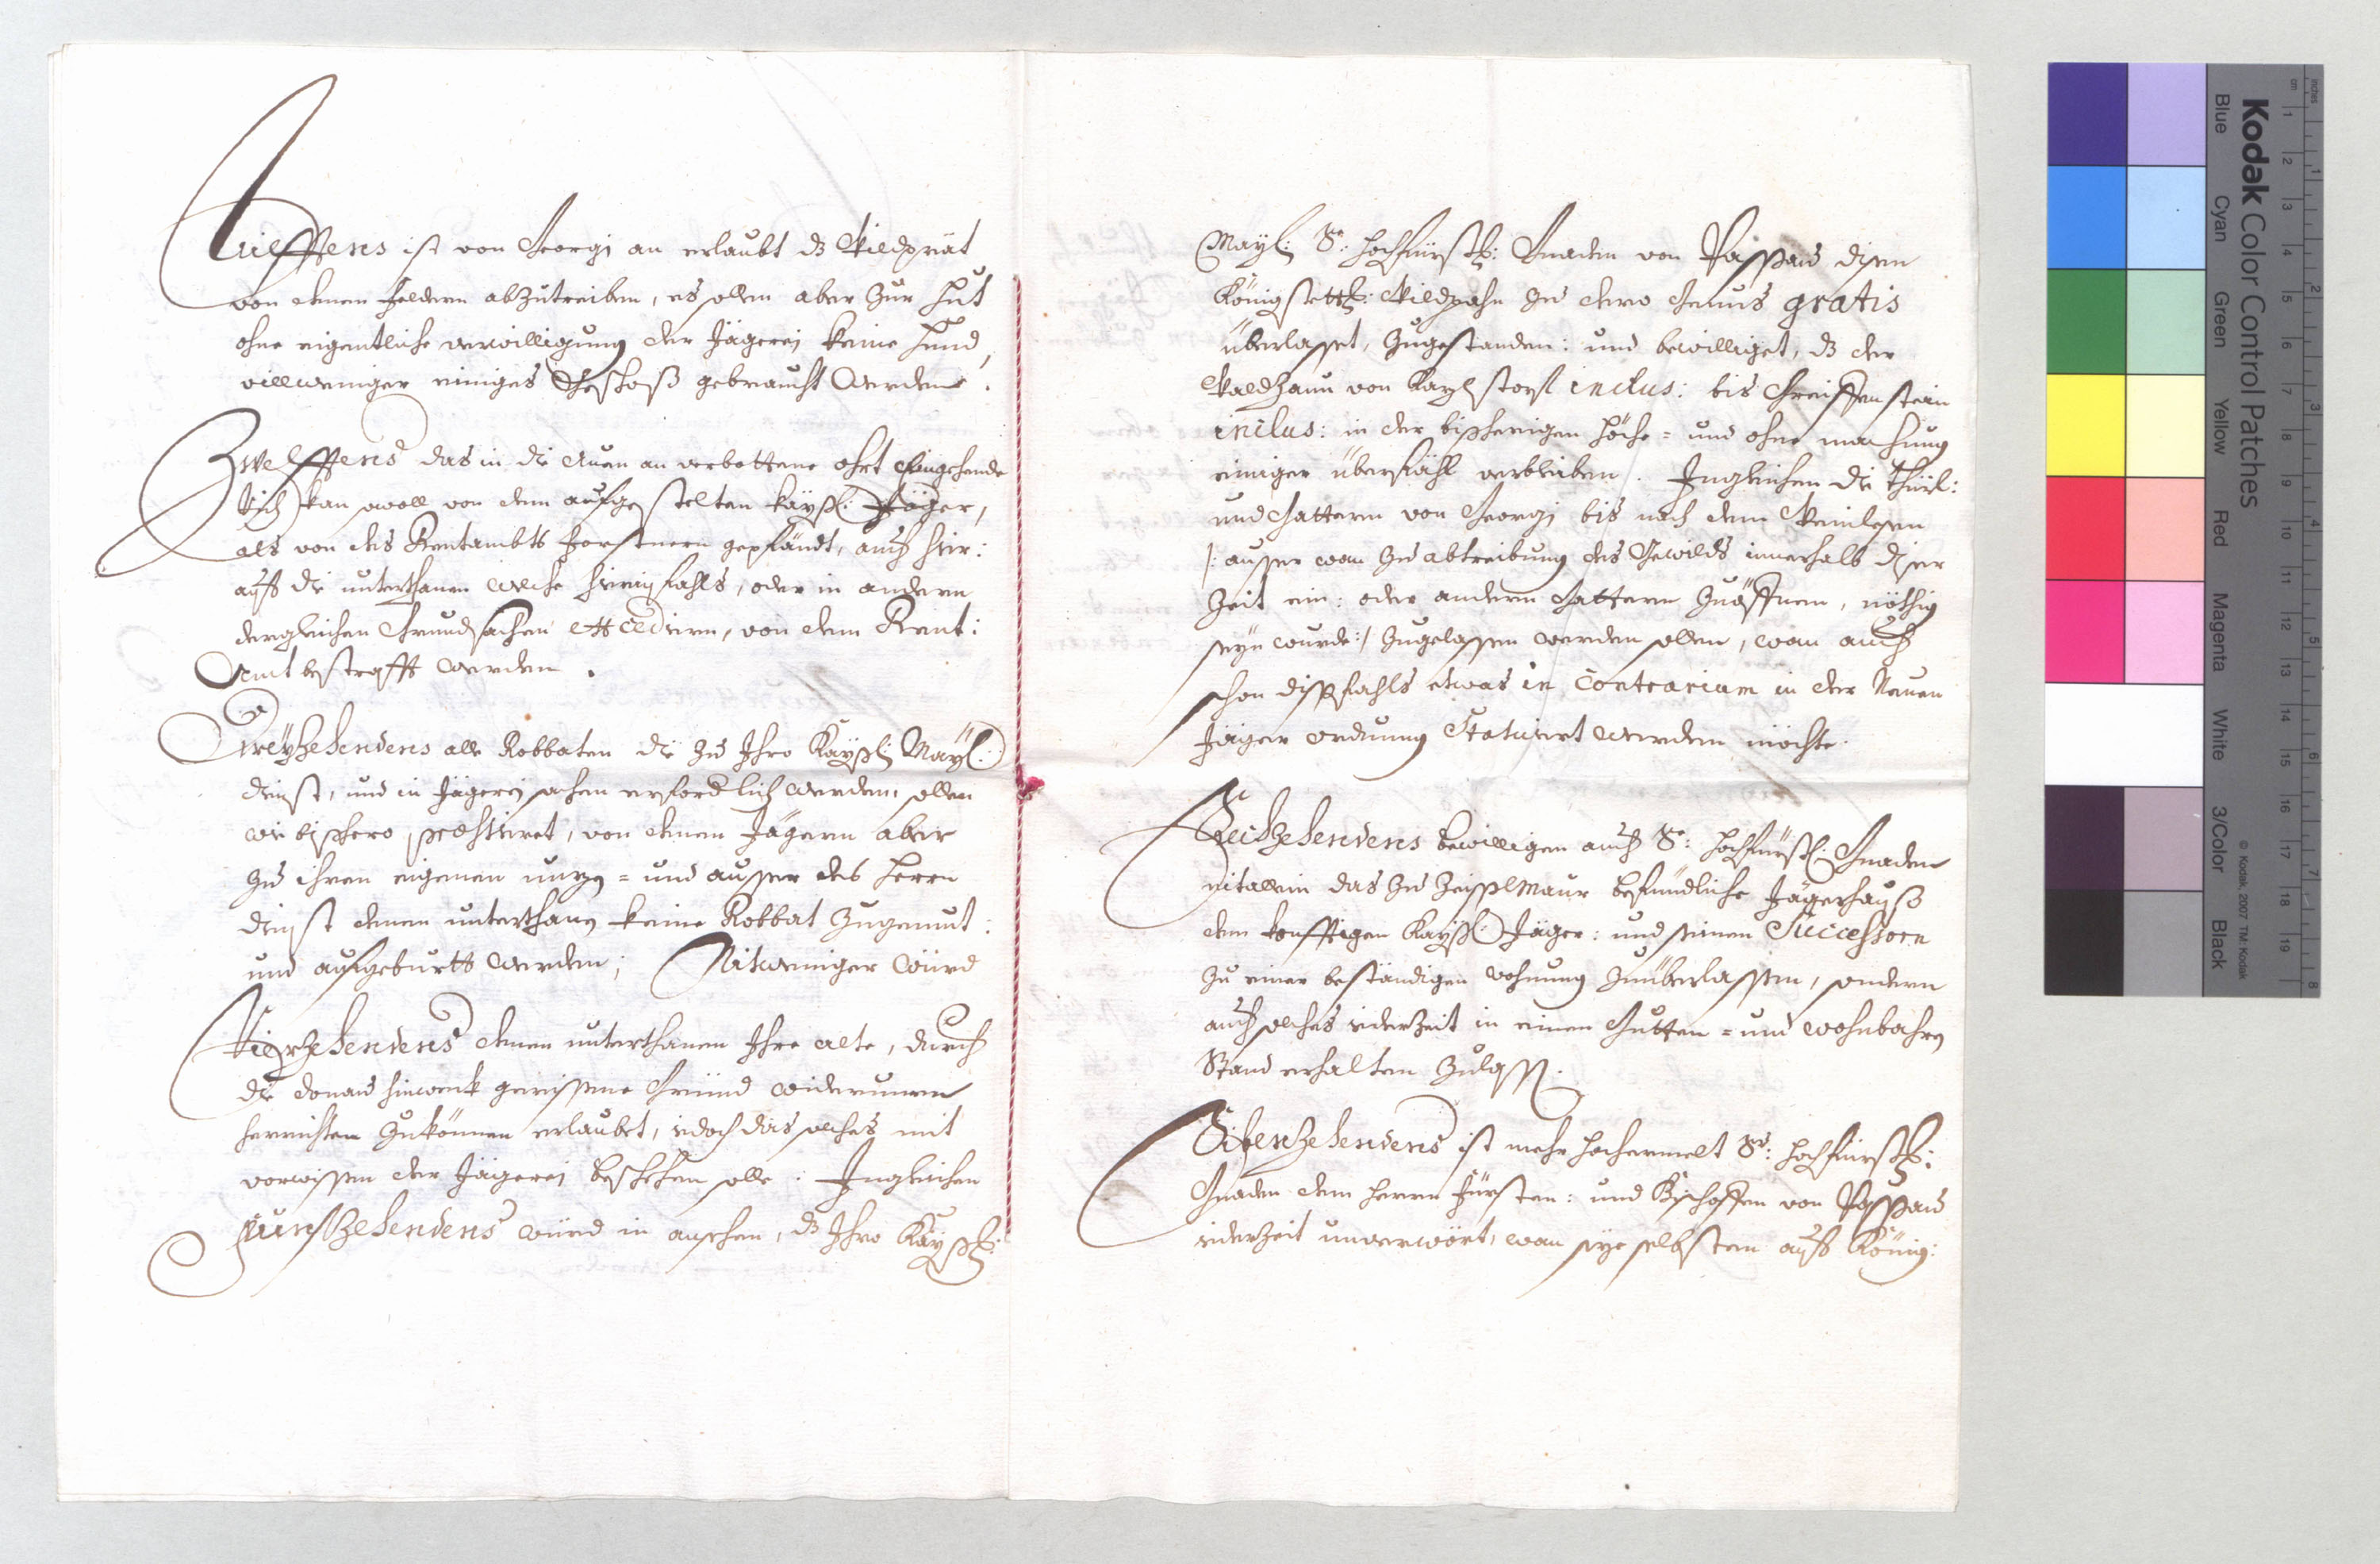 Ailfftens ist von Georgi an erlaubt dz Wildprät
von denen Feldern abzutreiben, es sollen aber zur hut
ohne eigentliche verwilligung der Jägerej keine hund,
villweniger einiges Geschoß gebraucht werden.
Zwelfftens das in die Auen an verbottene ohrt Eingehende
Vich kan woll von dem aufgestelten kayßl: Jäger,
als von des Rentambts Forstnern gepfändt, auch hier:
aufs die unterthanen welche hierinfahls, oder in andern
dergleichen Grundsachen excedirn, von dem Rent:
Amt bestrafft werden.
Dreyzehendens alle Robbaten die zu Ihro Kayßl: Mayl:
dienst, und in Jägerej sachen erforderlich werden, sollen
wie bishero praestiret, von denen Jägern aber
zu ihren eigenen nuzen = und ausser des herrn
dienst denen unterthanen keine Robbat zugemut:
und aufgeburtt werden; Nitweniger würd
Vierzehendens denen unterthanen Ihre alte, durch
die donau hinweck gerissene Gründ widerumen
herrichten zukönnen erlaubet, iedoch das solches mit
vorwissen der Jägerej beschehen solle: Ingleichen
Funfzehendens würd in ansehen, dz Ihro Kayßl:
Mayl: Sr: hochfürstl: Gnaden von Passau disen
Königstettl: Wildpahn zu dero Genus gratis
überlasset, zugestanden: und bewilliget, dz der
Waldzaun von inclus: bis Greiffenstein
inclus: in der bißherigen höche = und ohne machung
einiger überfähl verbleiben. Ingleichen die Thürl:
und Gattern von Georgj bis nach dem Weinlesen
/: ausser wan zu abtreibung des Gewilds innerhalb diser
Zeit ein: oder andern Gattern zuöffnen, nöthig
seyn wurde:/ zugelassen werden sollen, wan auch
schon dißfahls etwas in Contrarium in der Neuen
Jäger ordnung Statuirt werden möchte.
Sechzehendens bewilligen auch Sr: hochfürstl: Gnaden
nitallein das zu Zeißlmaur befündliche Jägerhauß
dem konfftigen Kayßl: Jäger: und seinen Successorn
zu einer beständigen wohnung zuüberlassen, sondern
auch solches iederzeit in einem Gutten = und wohnbahren
Stand erhalten zulassen.
Sibenzehendens ist mehr hochermelt Sr: hochfürstl:
Gnaden dem herrn Fürsten: und Bischoffen von Passau
iederzeit unverwört, wan sye selbsten aufs König:
Kodak Color Control Patches
Blue Cyan Green Yellow Red Magenta White 3/Color Black
© Kodak, 2007 TM: Kodak
inches 1 2 3 4 5 6 7 8
cm 1 2 3 4 5 6 7 8 9 10 11 12 13 14 15 16 17 18 19